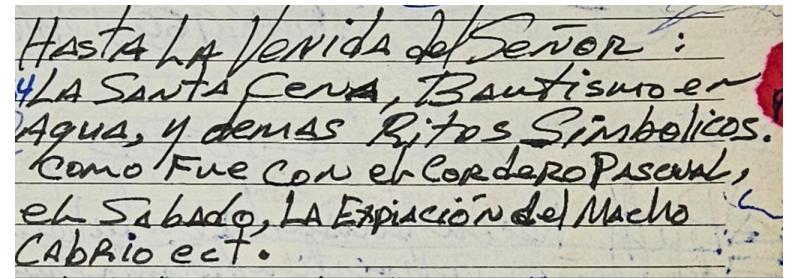 Hasta La Venida del Señor :
4 La Santa Cena, Bautismo en
Agua, y demas Ritos Simbolicos.
Como Fue con el Cordero Pascual,
el Sabado, La Expiación del Macho
Cabrio ect.